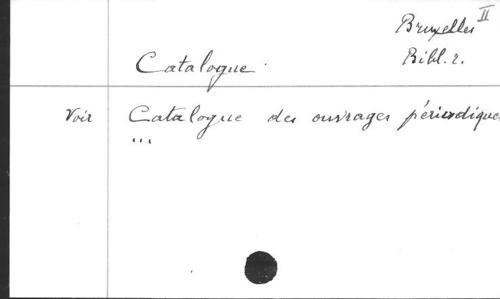 Bruxelles II
Bibl. r.
Catalogue
Voir Catalogue des ouvrages périodiques
...